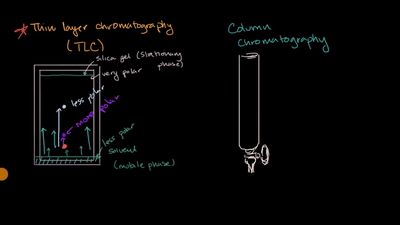 Thin layer chromatography
(TLC)
silica gel (stationary
phase)
very polar
less polar
more polar
less polar
solvent
(mobile phase)
Column
Chromatography